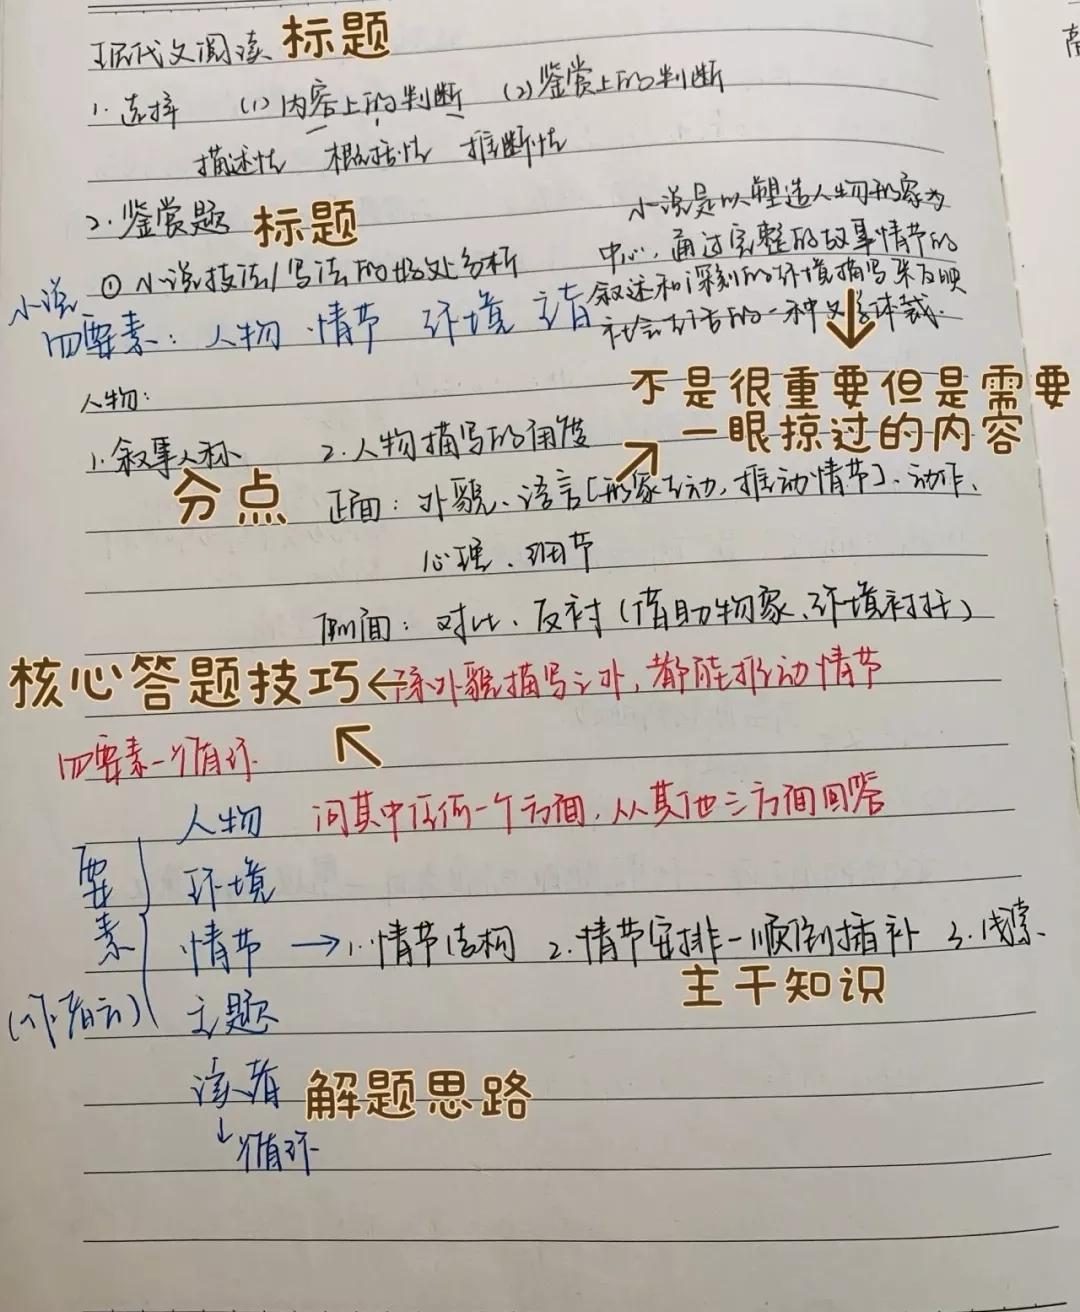 现代文阅读 标题
1. 选择 (1) 内容上的判断 (2) 鉴赏上的判断
描述性 概括性 推断性
2. 鉴赏题 标题
① 小说技法/写法的好处分析
小说是以塑造人物形象为
中心,通过完整的故事情节的
叙述和深刻的环境描写来反映
社会生活的一种文学体裁.
小说
四要素: 人物 情节 环境 主旨
不是很重要但是需要
一眼掠过的内容
人物:
1. 叙事人称 2. 人物描写的角度
分点
正面: 外貌、语言[形象生动,推动情节]、动作、
心理、细节
侧面: 对比、反衬(借助物象、环境衬托)
核心答题技巧 ←除外貌描写之外,都能推动情节
四要素一循环
人物 问其中任何一个方面,从其他三方面回答
要素 环境
情节 → 1. 情节结构 2. 情节安排—顺倒插补 3. 线索
主干知识
(作者) 主题
读者 解题思路
↓循环